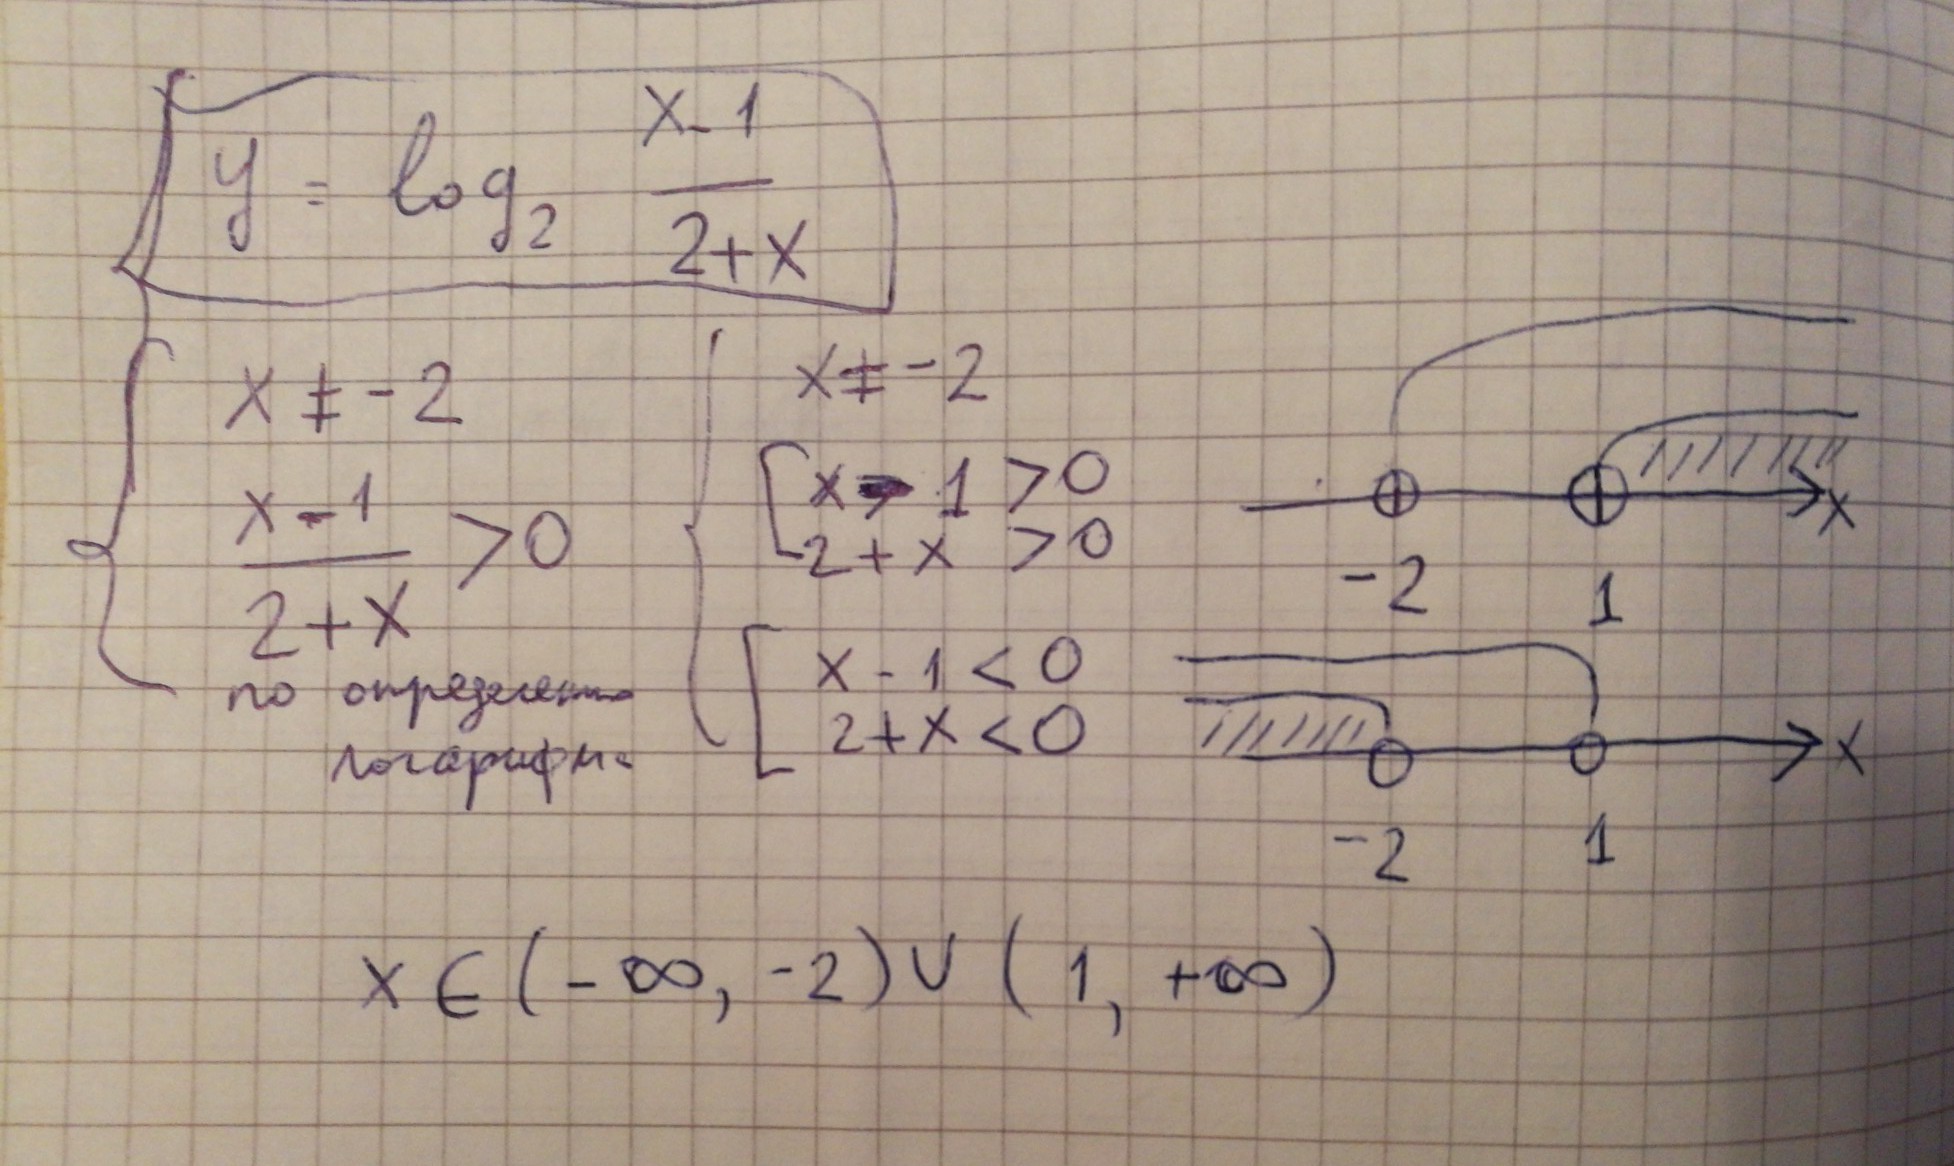 y = log₂ (x-1)/(2+x)
x ≠ -2
(x-1)/(2+x) > 0
по определению
логарифма
x ≠ -2
x - 1 > 0
2 + x > 0
x - 1 < 0
2 + x < 0
-2 1 x
-2 1 x
x ∈ (-∞, -2) ∪ (1, +∞)